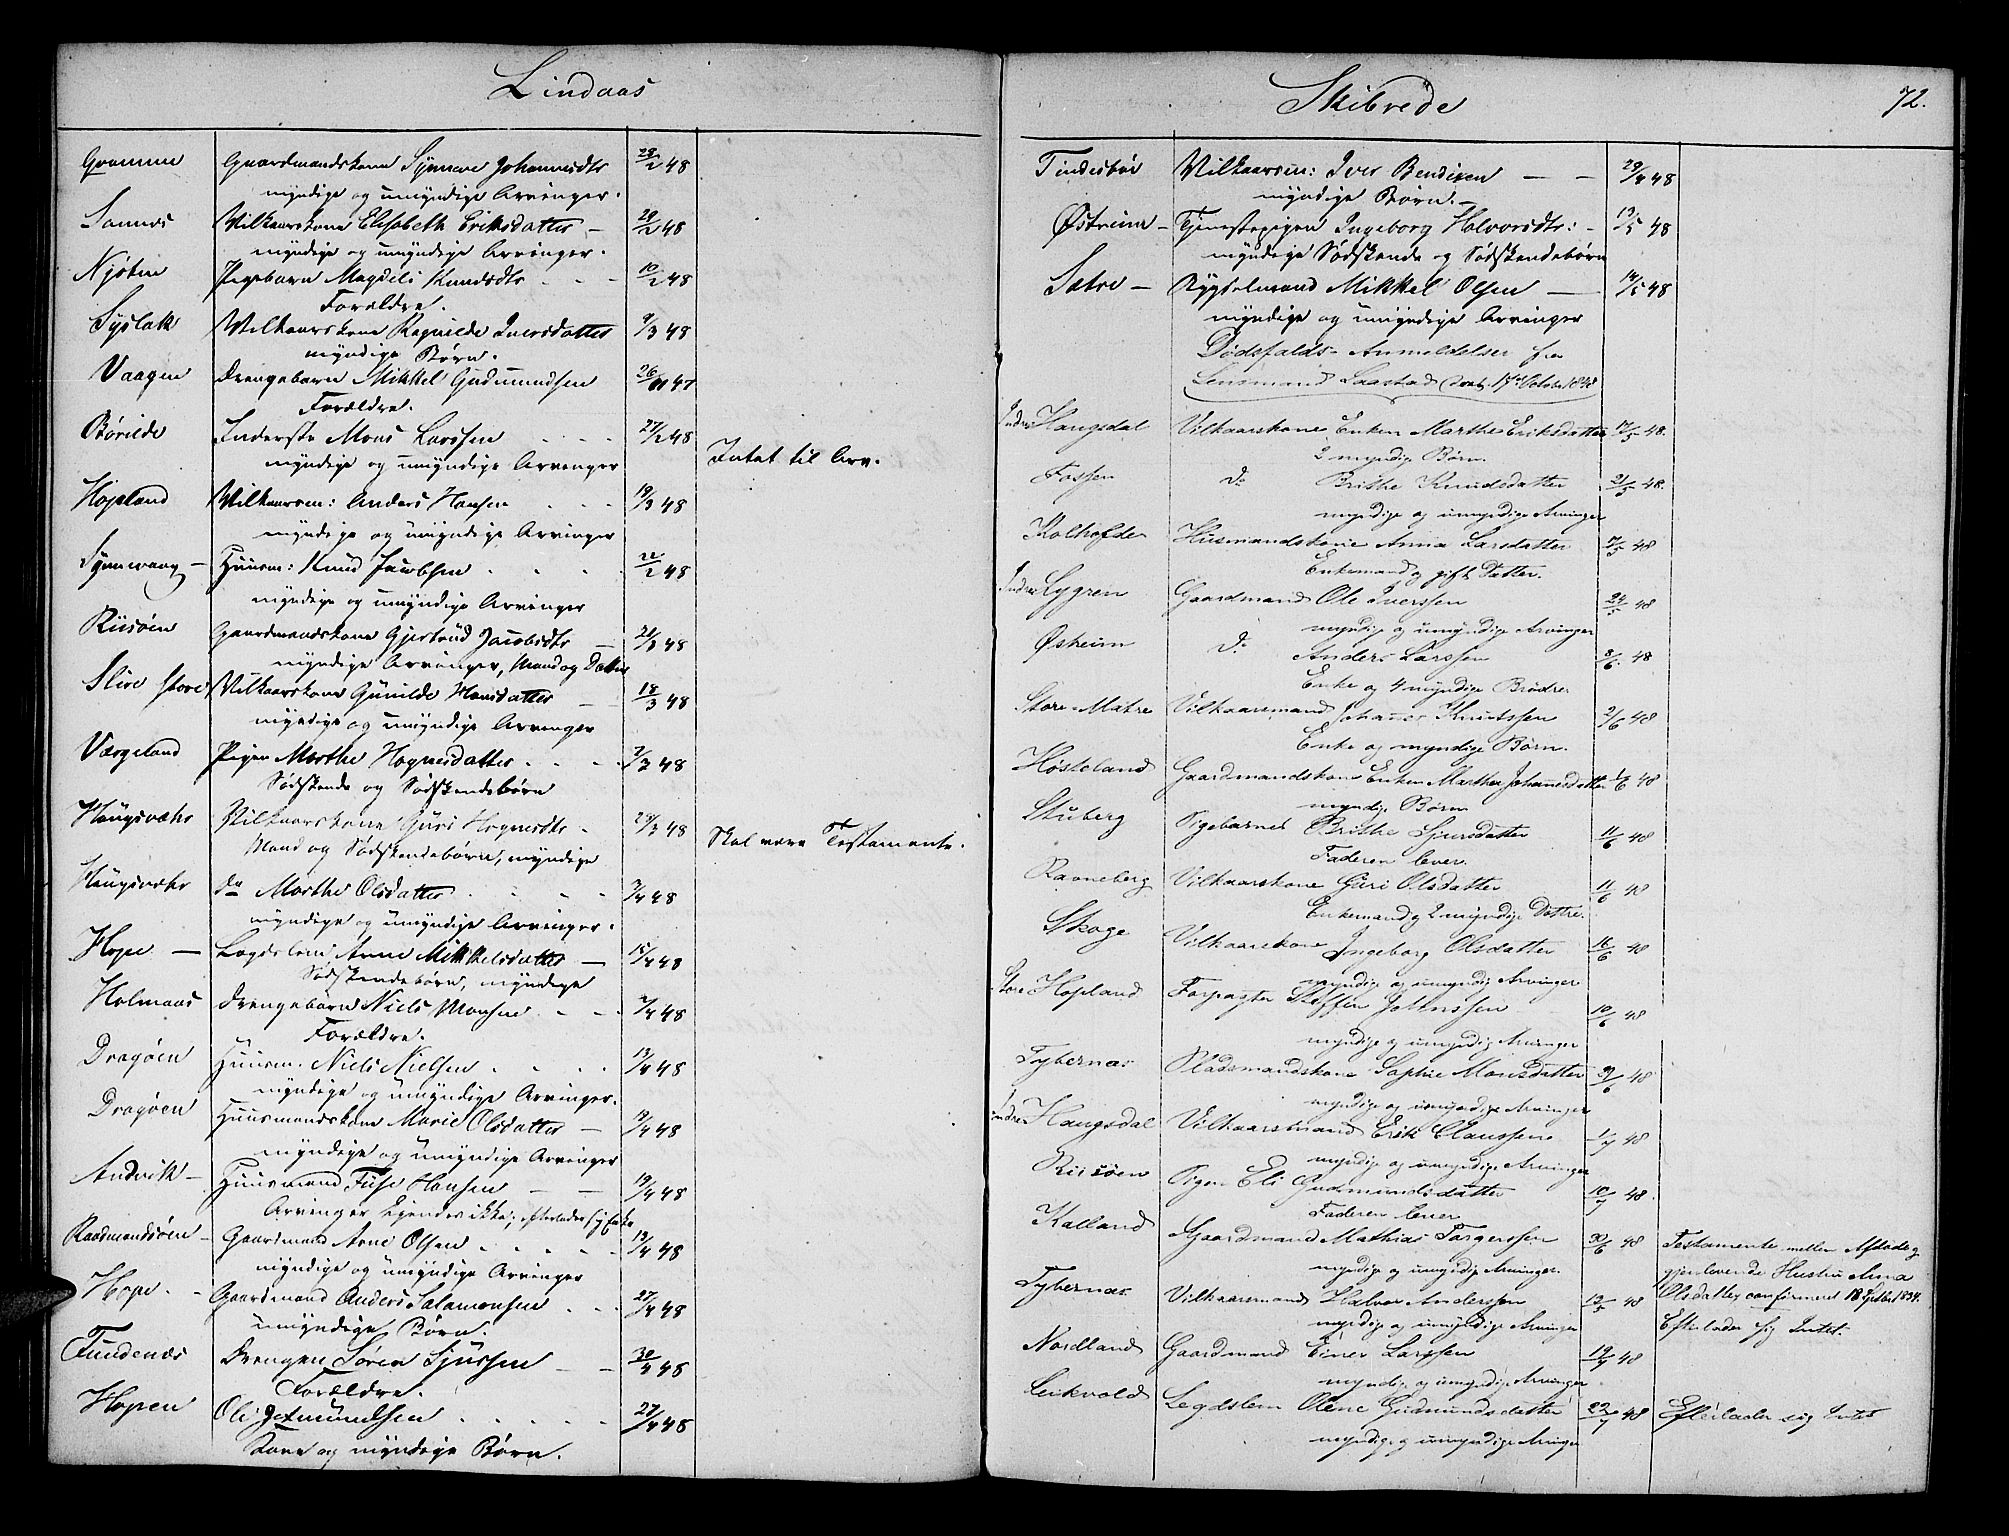 Lindaas
Gramme Gaardmandskone Synneve Johannesdtr 28/2 48
myndige og umyndige Arvinger.
Sannes Vilkaarskone Elisabeth Eriksdatter 29/2 48
myndige og umyndige Arvinger.
Njøten Pigebarn Magdeli Knudsdtr 10/2 48
Forældre.
Syslak Vilkaarskone Ragnilde Iversdatter 9/3 48
myndige Børn.
Vaagen Drengebarn Mikkel Gudmundsen 47
Forældre.
Børilde Inderste Mons Larssen 27/2 48
myndige og umyndige Arvinger Intet til Arv.
Hopland Vilkaarsm: Anders Hansen 19/3 48
myndige og umyndige Arvinger
Synnevaag Huusm: Knud Jacobsen 22/2 48
myndige og umyndige Arvinger
Riisøen Gaardmandskone Gjertrud Jacobsdtr 21/3 48
myndige Arvinger, Mand og Datter
Slire store Vilkaarskone Gunilde Hansdatter 18/3 48
myndige og umyndige Arvinger
Værgeland Pigen Marthe Hognesdatter 7/3 48
Södskende og Södskendebörn
Haugsvær Vilkaarskone Guri Hognesdtr 29/3 48
Mand og Södskendebörn, myndige Skal være Testamente.
Haugsvær do Marthe Olsdatter 7/4 48
myndige og umyndige Arvinger.
Hope Lægdslem Anne Mikkelsdatter 15/4 48
Södskendebörn, myndige
Holmaas Drengebarn Niels Monsen 7/4 48
Forældre.
Dragøen Huusm. Niels Nielsen 13/4 48
myndige og umyndige Arvinger.
Dragøen Huusmandskone Marie Olsdatter 12/4 48
myndige og umyndige Arvinger
Andvik Huusmand Fuse Hansen 19/4 48
Arvinger kjendes ikke; efterlader sig Enke
Raadmandsøen Gaardmand Arne Olsen 13/4 48
myndige og umyndige Arvinger
Hope Gaardmand Anders Salamonsen 27/4 48
umyndige Børn.
Fundenæs Drengen Søren Sjursen 30/4 48
Forældre.
Hopen Ole Jetmundsen 27/4 48
Kone og myndige Børn.
Skibrede 72.
Tindesbø Vilkaarsm: Iver Bendixen 29/4 48
myndige Börn.
Østreim Tjenestepigen Ingeborg Halvorsdtr: 13/5 48
myndige Södskende og Södskendebörn
Sætre Rygselmand Mikkel Olsen 14/5 48
myndige og umyndige Arvinger
Dødsfalds-Anmeldelser fra
Lensmand Saastad dat. 17de October 1848
Indre Haugsdal Vilkaarskone Enken Marthe Eriksdatter 17/5 48.
2 myndige Børn.
Fossen do Brithe Knudsdatter 21/5 48.
myndige og umyndige Arvinger
Kolhofde Husmandskone Anna Larsdatter 7/5 48
Enkemand og gift Datter.
Indre Lygren Gaardmand Ole Iverssen 24/5 48
myndige og umyndige Arvinger
Østreim do Anders Larssen 8/6 48
Enke og 4 myndige Brødre.
Store Matre Vilkaarsmand Johannes Knutssen 2/6 48
Enke og myndige Børn.
Høsteland Gaardmandskone Enken Marthe Johannesdatter 1/6 48
myndige Børn
Stuberg Pigebarnet Brithe Sjursdatter 11/6 48
Faderen lever.
Ravneberg Vilkaarskone Guri Olsdatter 11/6 48
Enkemand og 2 myndige Døttre.
Skoge Vilkaarskone Ingeborg Olsdatter 16/6 48
myndige og umyndige Arvinger
Store Hopland Forpagter Steffen Johnssen 10/6 48
myndige og umyndige Arvinger
Fybernæs Pladsmandskone Sophie Monsdatter 9/6 48
myndige og umyndige Arvinger
Indre Haugsdal Vilkaarsmand Erik Claussen 1/7 48
myndige og umyndige Arvinger
Riisøen Pigen Eli Gudmundsdatter 10/7 48.
Faderen lever
Kalland Gaardmand Mathias Torgerssen 30/6 48 Testamente mellem Afdøde og
myndige og umyndige Arvinger. gjenlevende Hustru Anna
Fybernæs Vilkaarsmand Halvor Anderssen 13/5 48 Olsdatter confirmeret 18 1834.
myndige og umyndige Arvinger Efterlader sig Intet.
Nordland Gaardmand Einer Larssen 19/7 48
myndige og umyndige Arvinger.
Leikvold Legdslem Olene Gudmundsdatter 22/7 48 Efterlader sig Intet
myndige og umyndige Arvinger